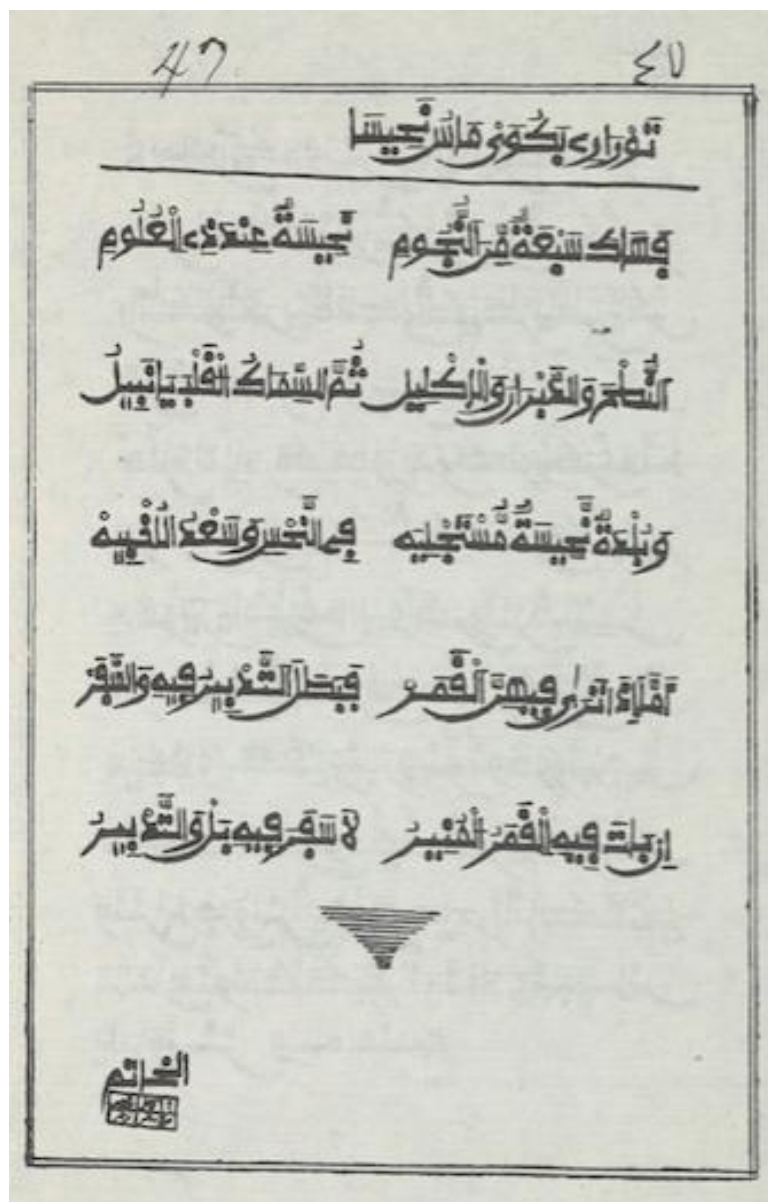 47 ٤٧
تَوْرَارِى بَكُوَىْ مَاسُ نَحِيسَا
فَهَاكَ سَبْعَةٌ مِّنَ النُّجُومِ نَحِيسَةٌ عِنْدَ ذِى الْعُلُومِ
النُّطْحُ وَالدَّبْرَانُ وَالْإِكْلِيلُ ثُمَّ السِّمَاكُ الْقَلْبُ يَا نَبِيلُ
وَبُلْدَةٌ نَّحِيسَةٌ مُّسْتَجْلِيَه فِى النَّحْسِ وَسَعْدُ الْأَخْبِيَه
فِيهِنَّ الْقَمَر فَبَطَلَ التَّدْبِيرُ فِيهِ وَالسَّفَر
اِن بَاتَ فِيهِ الْقَمَرُ الْمُنِيرُ لَا سَفَرَ فِيهِ بَلْ وَالتَّدْبِيرُ
الخاتم